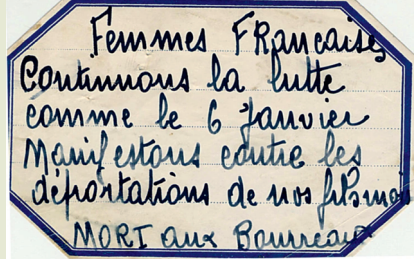 Femmes Françaises
Continuons la lutte
comme le 6 Janvier
Manifestons contre les
déportations de nos fils
MORT aux Bourreaux